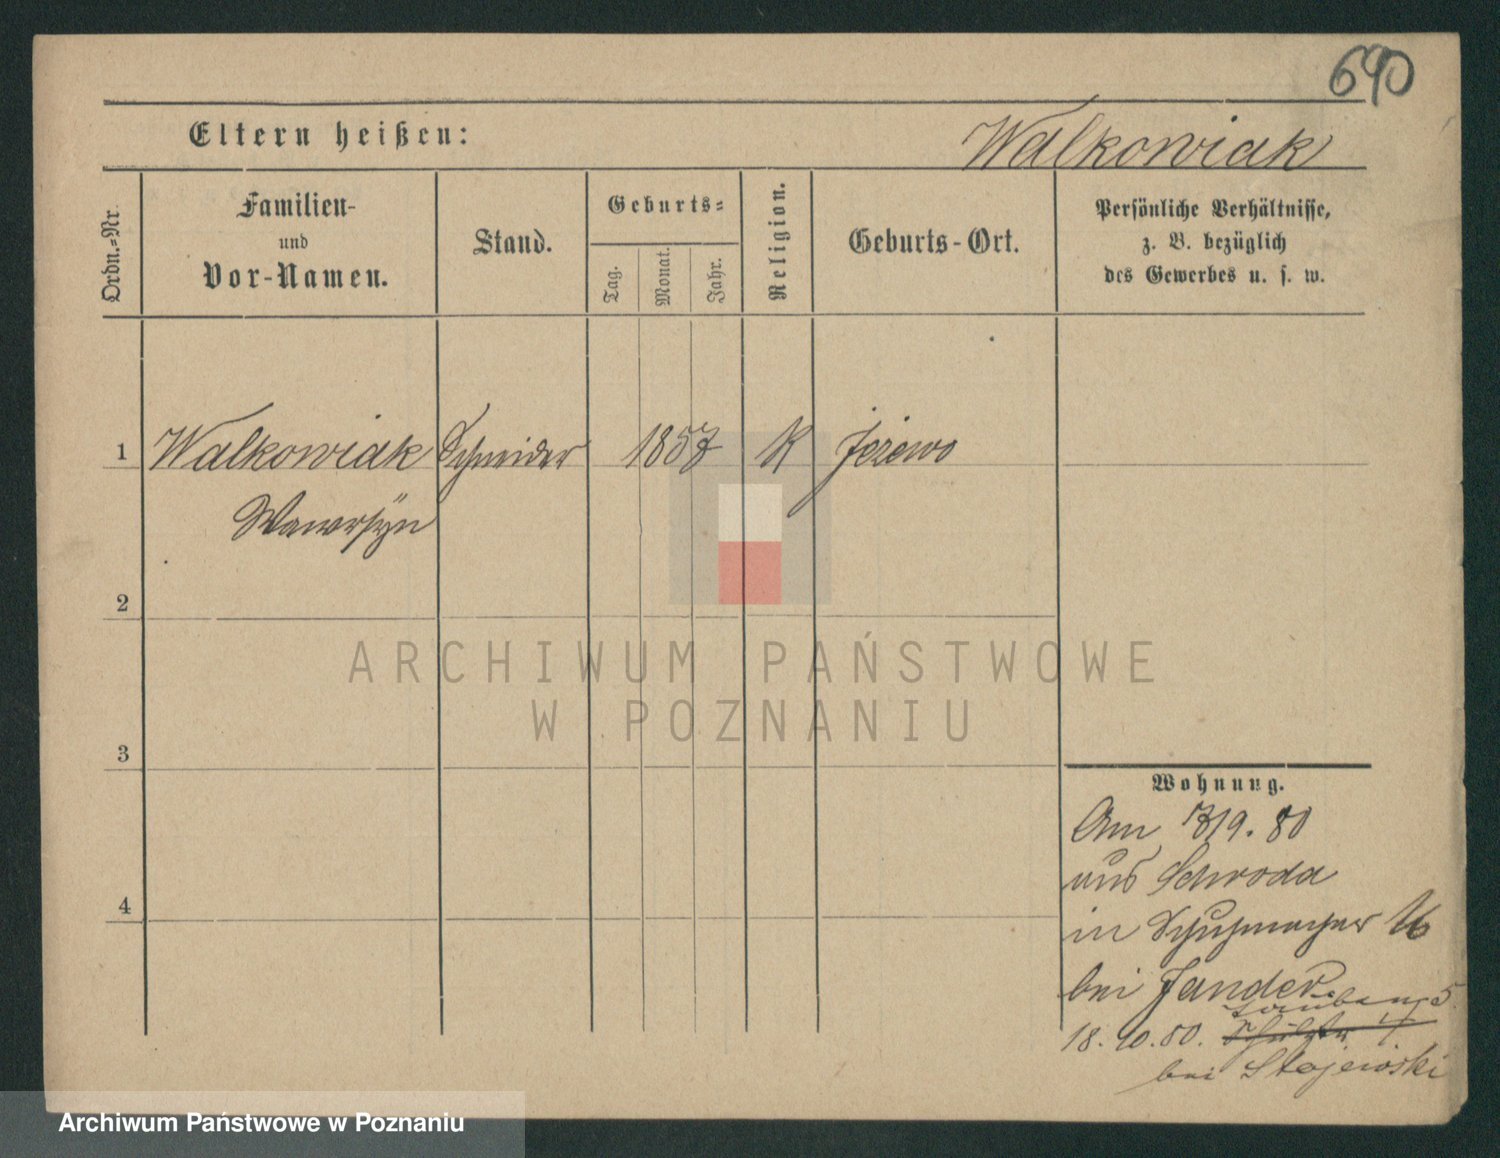 690
Eltern heißen:
Walkowiak
Ordn.=Nr.
Familien-
und
Vor-Namen.
Stand.
Geburts=
Tag.
Monat.
Jahr.
Religion.
Geburts-Ort.
Persönliche Verhältnisse,
z. B. bezüglich
des Gewerbes u. s. w.
1 Walkowiak Schneider 1857 K Jeżewo
Wawrsÿn
2
3
4
ARCHIWUM PAŃSTWOWE
W POZNANIU
Wohnung.
Am 19. 80
aus Schroda
in Schuhmacher 16
bei Jander
5
18. 10. 80.
bei Stojewski
Archiwum Państwowe w Poznaniu